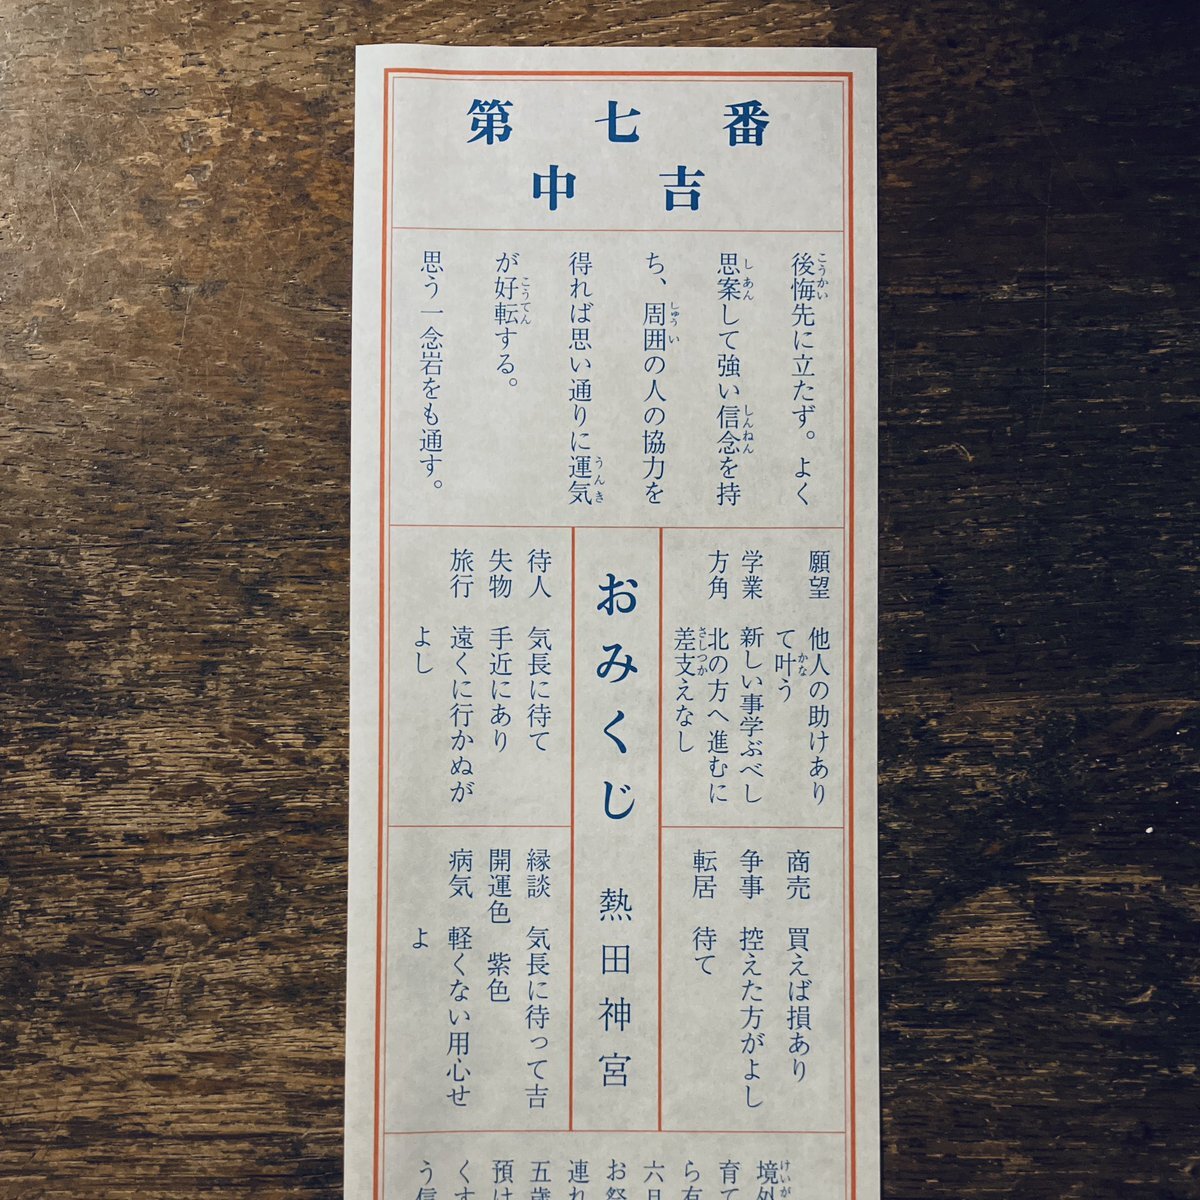 第七番
中吉
後悔先に立たず。よく
思案して強い信念を持
ち、周囲の人の協力を
得れば思い通りに運気
が好転する。
思う一念岩をも通す。
願望 他人の助けあり
て叶う
学業 新しい事学ぶべし
方角 北の方へ進むに
差支えなし
商売 買えば損あり
争事 控えた方がよし
転居 待て
おみくじ 熱田神宮
待人 気長に待て
失物 手近にあり
旅行 遠くに行かぬが
よし
縁談 気長に待って吉
開運色 紫色
病気 軽くない用心せ
よ
境外
育て
ら有
六月
お祭
連れ
五歳
預け
くす
う信